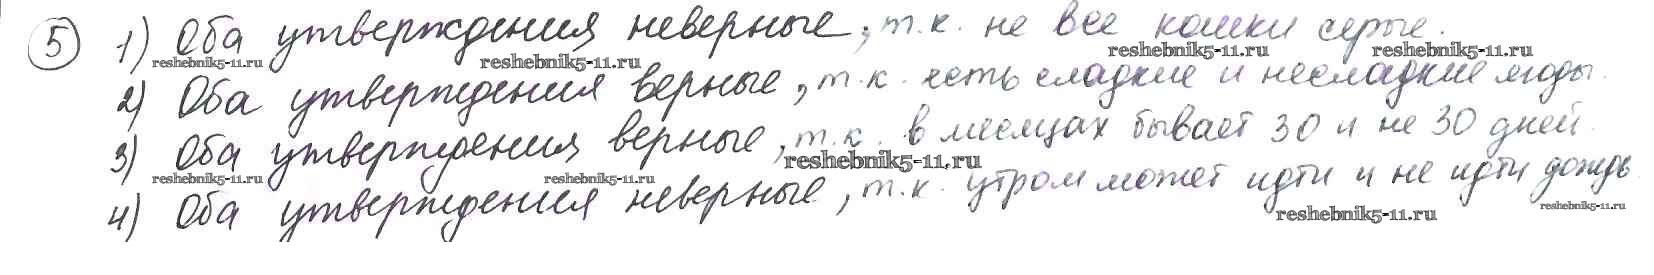 5) 1) Оба утверждения неверные, т.к. не все кошки серые.
reshebnik5-11.ru reshebnik5-11.ru reshebnik5-11.ru reshebnik5-11.ru
2) Оба утверждения верные, т.к. есть сладкие и несладкие плоды.
3) Оба утверждения верные, т.к. в месяцах бывает 30 и не 30 дней.
reshebnik5-11.ru reshebnik5-11.ru reshebnik5-11.ru
4) Оба утверждения неверные, т.к. утром может идти и не идти дождь
reshebnik5-11.ru reshebnik5-11.ru